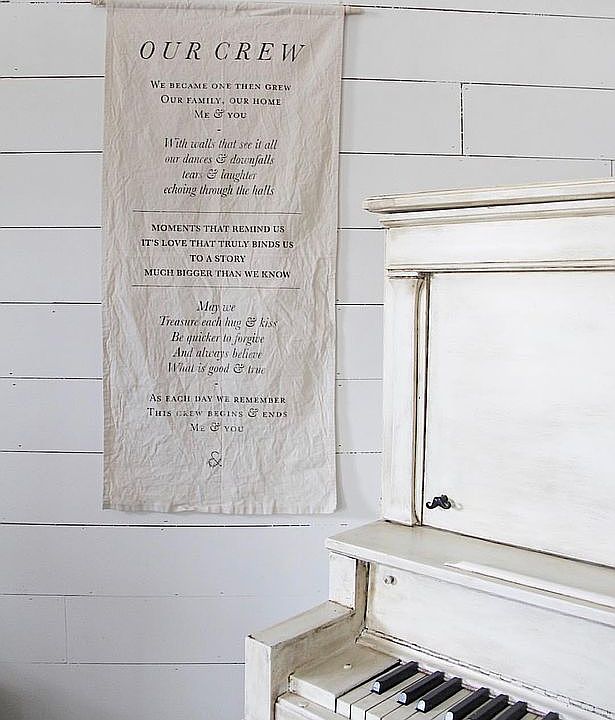 OUR CREW
WE BECAME ONE THEN GREW
OUR FAMILY, OUR HOME
ME & YOU
-
With walls that see it all
our dances & downfalls
tears & laughter
echoing through the halls
MOMENTS THAT REMIND US
IT'S LOVE THAT TRULY BINDS US
TO A STORY
MUCH BIGGER THAN WE KNOW
May we
Treasure each hug & kiss
Be quicker to forgive
And always believe
What is good & true
-
AS EACH DAY WE REMEMBER
THIS CREW BEGINS & ENDS
ME & YOU
&